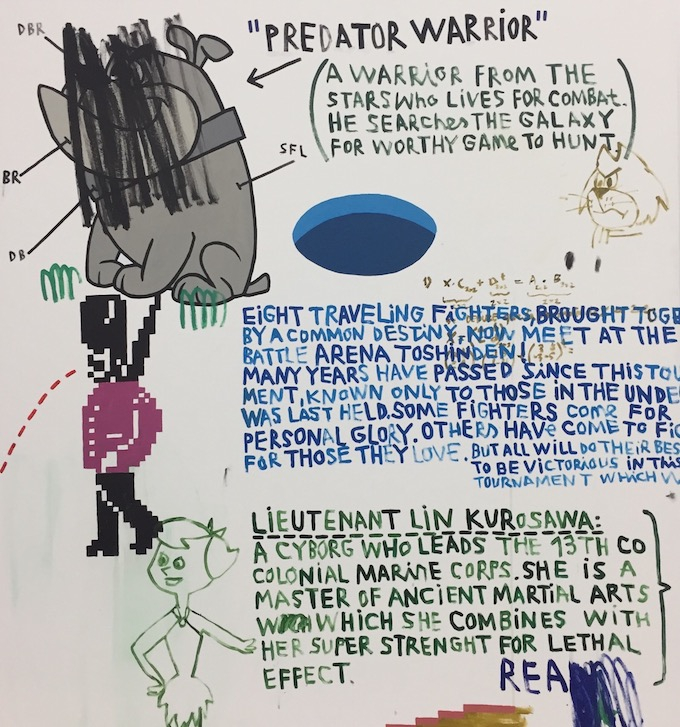 DBR
"PREDATOR WARRIOR"
(A WARRIOR FROM THE
STARS WHO LIVES FOR COMBAT.
HE SEARCHES THE GALAXY
FOR WORTHY GAME TO HUNT.)
SFL
BR
DB
EIGHT TRAVELING FIGHTERS, BROUGHT TOGE
BY A COMMON DESTINY, NOW MEET AT THE
BATTLE ARENA TOSHINDEN!
MANY YEARS HAVE PASSED SINCE THIS TOU
MENT, KNOWN ONLY TO THOSE IN THE UNDE
WAS LAST HELD. SOME FIGHTERS COME FOR
PERSONAL GLORY. OTHERS HAVE COME TO FIG
FOR THOSE THEY LOVE. BUT ALL WILL DO THEIR BES
TO BE VICTORIOUS IN THIS
TOURNAMENT WHICH W
LIEUTENANT LIN KUROSAWA:
A CYBORG WHO LEADS THE 13TH CO
COLONIAL MARINE CORPS. SHE IS A
MASTER OF ANCIENT MARTIAL ARTS
WHICH SHE COMBINES WITH
HER SUPER STRENGHT FOR LETHAL
EFFECT.
REA